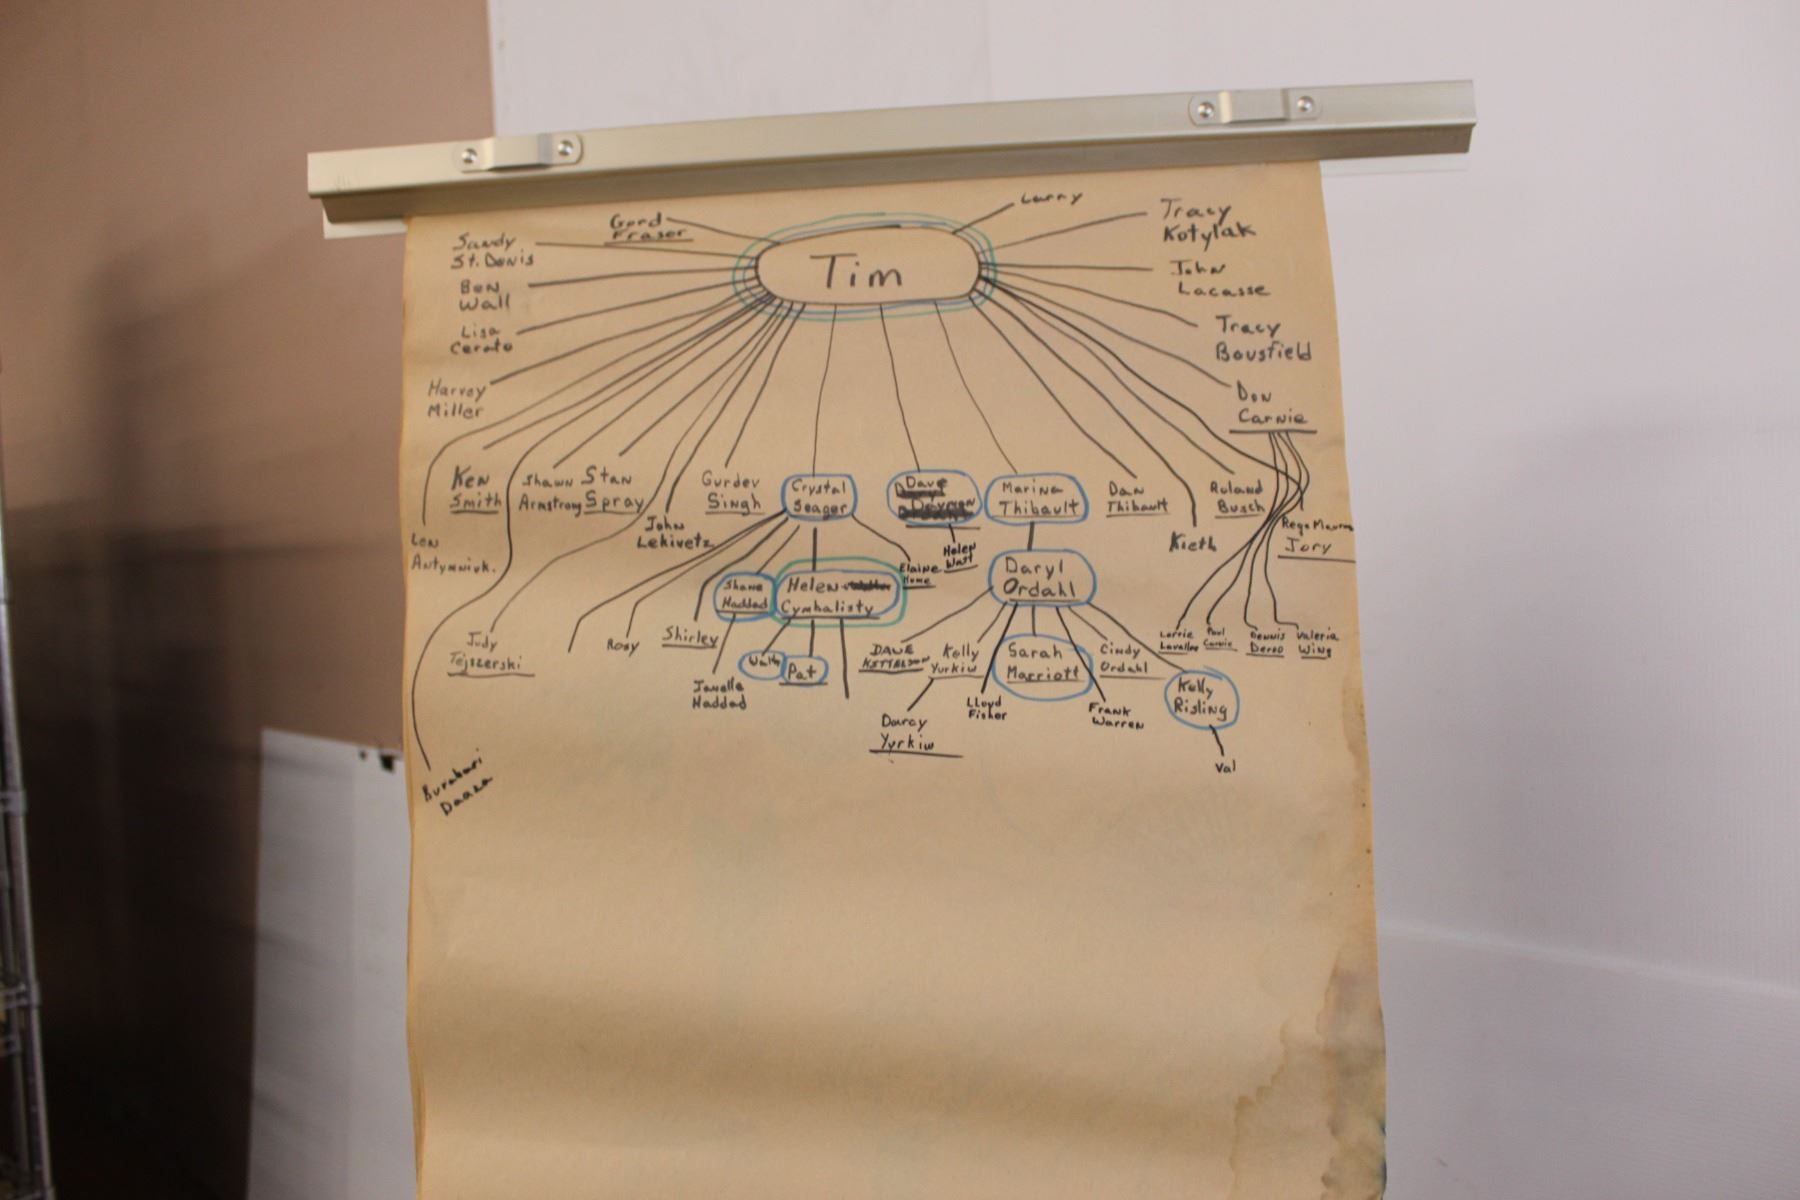 Tim
Larry
Gord
Fraser
Tracy
Kotylak
Sandy
St. Denis
John
Lacasse
Ben
Wall
Tracy
Bousfield
Lisa
Cerato
Harvey
Miller
Don
Carnie
Ken
Smith
Shawn
Armstrong
Stan
Spray
Gurdev
Singh
Crystal
Seager
Dave
Marina
Thibault
Dan
Thibault
Roland
Busch
Len
John
Lekivetz
Helen
Watt
Kieth
Jory
Elaine
Hume
Daryl
Ordahl
Shane
Haddad
Helen
Cymbalisty
Judy
Tejszerski
Rosy
Shirley
Janelle
Haddad
Pat
Dave
Kettelson
Kelly
Yurkiw
Sarah
Marriott
Cindy
Ordahl
Lorrie
Lavallee
Paul
Carnie
Dennis
Valeria
Wing
Darcy
Yurkiw
Lloyd
Fisher
Frank
Warren
Kelly
Risling
Val